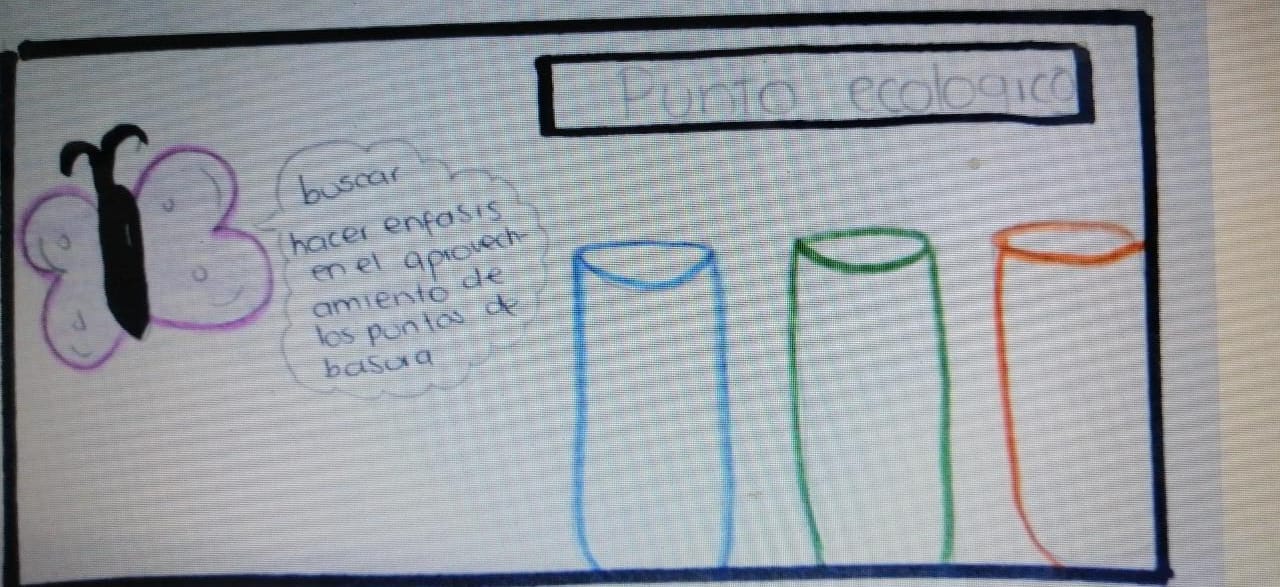 Punto ecologico
buscar
hacer enfasis
en el aprovech-
amiento de
los puntos de
basura